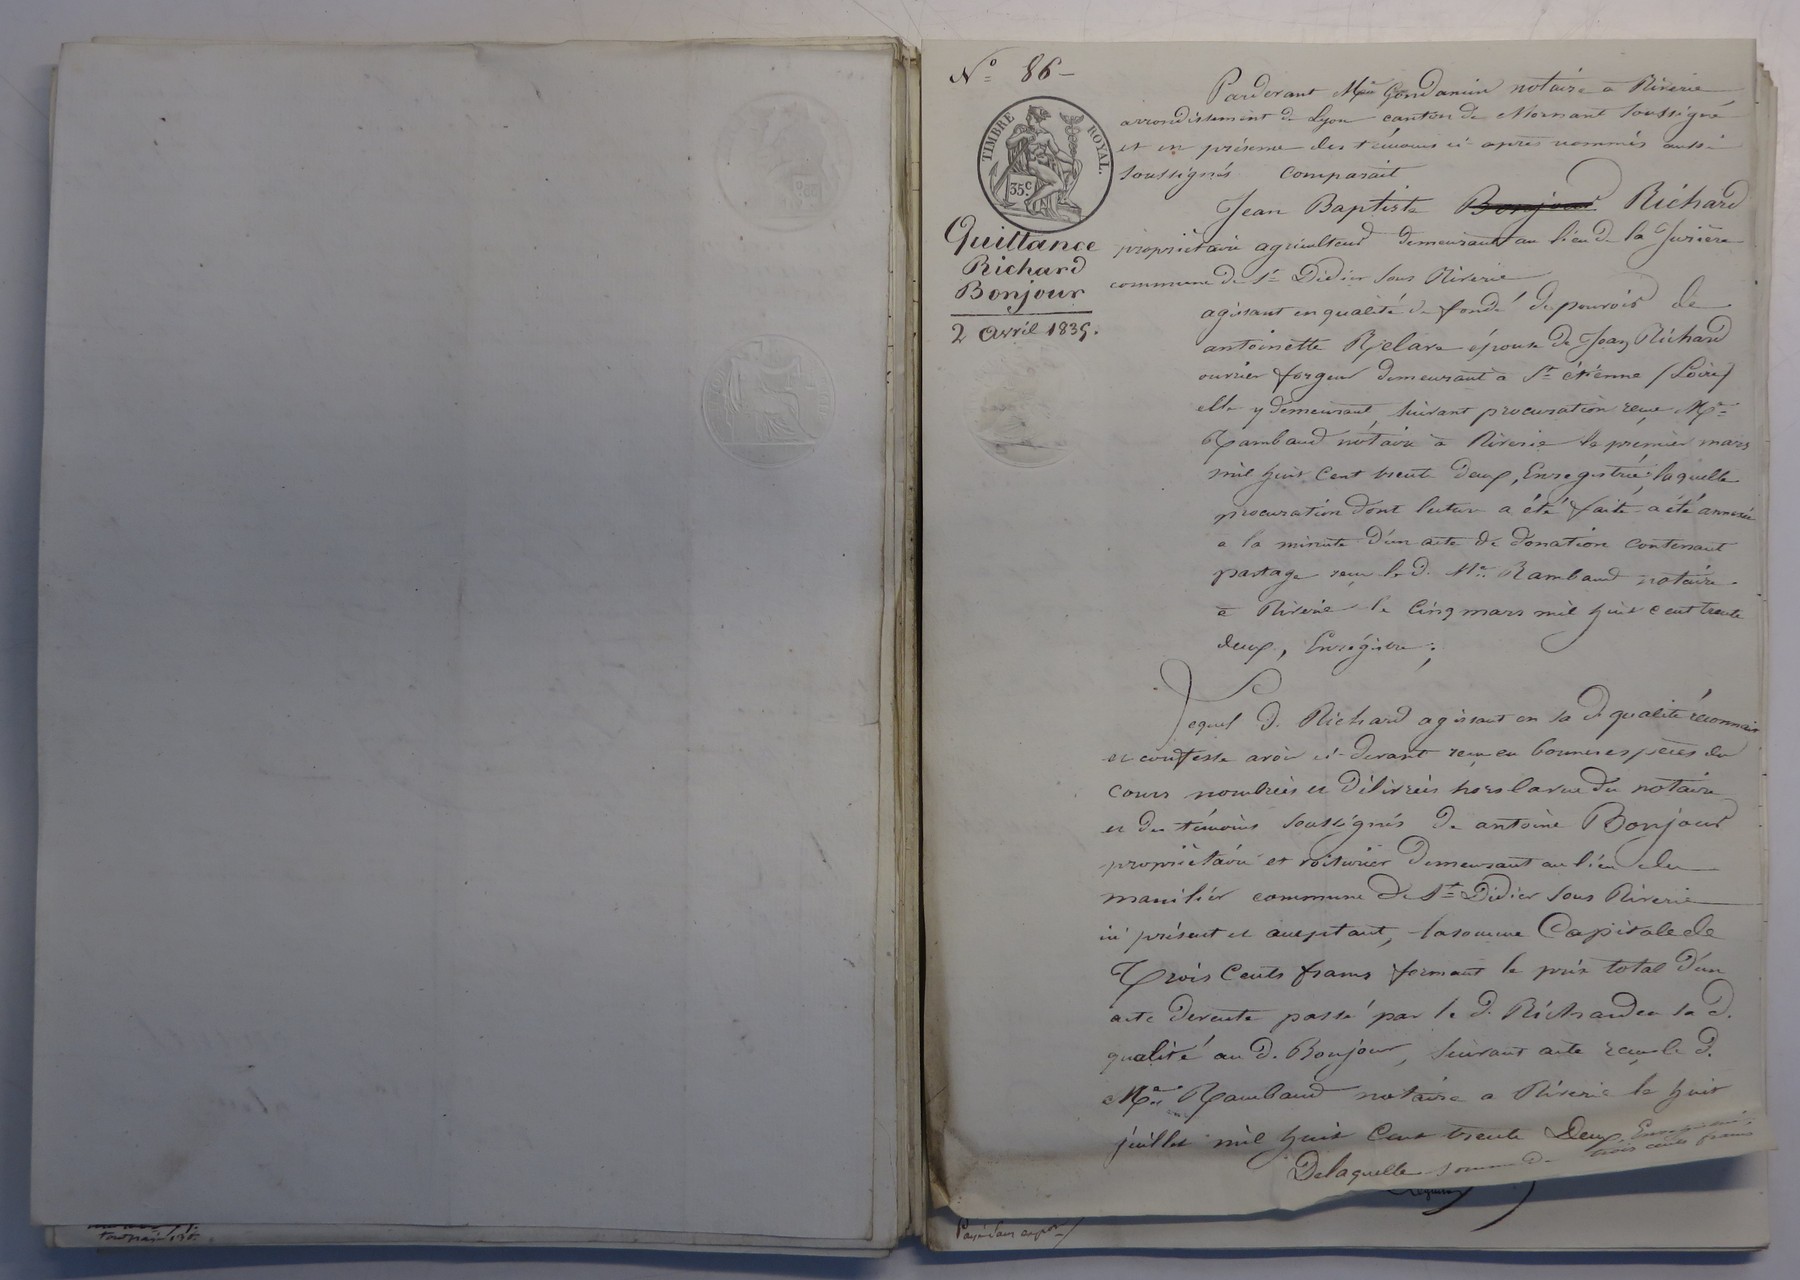 N° 86 -
TIMBRE ROYAL.
35 c.
Quittance
Richard
Bonjour
2 avril 1835.
Pardevant Me Gondamin notaire a Riverie
arrondissement de Lyon canton de Mornant soussigné
et en présence des témoins ci après nommés aussi
soussignés comparait
Jean Baptiste Bonjour Richard
propriétaire agriculteur demeurant au lieu de la
commune de St Didier sous Riverie
agissant en qualité de fondé de pouvoir de
antoinette épouse de Jean Richard
ouvrier forgeur demeurant a St étienne (Loire)
elle y demeurant, suivant procuration reçue Me
Rambaud notaire a Riverie le premier mars
mil huit cent trente deux, Enregistrée, laquelle
procuration dont lecture a été faite a été annexée
a la minute d'un acte de donation contenant
partage reçu le d. Me Rambaud notaire
a Riverie le cinq mars mil huit cent trente
deux, Enrégistré;
Lequel d. Richard agissant en sa d. qualité reconnait
et confesse avoir ci devant reçu en bonnes espèces du
cours nombrées et délivrées hors la vue du notaire
et des témoins soussignés de antoine Bonjour
propriétaire et voiturier demeurant au lieu du
commune de St Didier sous Riverie
ici présent et acceptant, la somme Capitale de
Trois Cents francs formant le prix total d'un
acte de vente passé par le d. Richard en sa d.
qualité au d. Bonjour, suivant acte reçu le d.
Me Rambaud notaire a Riverie le huit
juillet mil huit Cent trente Deux
De laquelle somme de trois cents francs